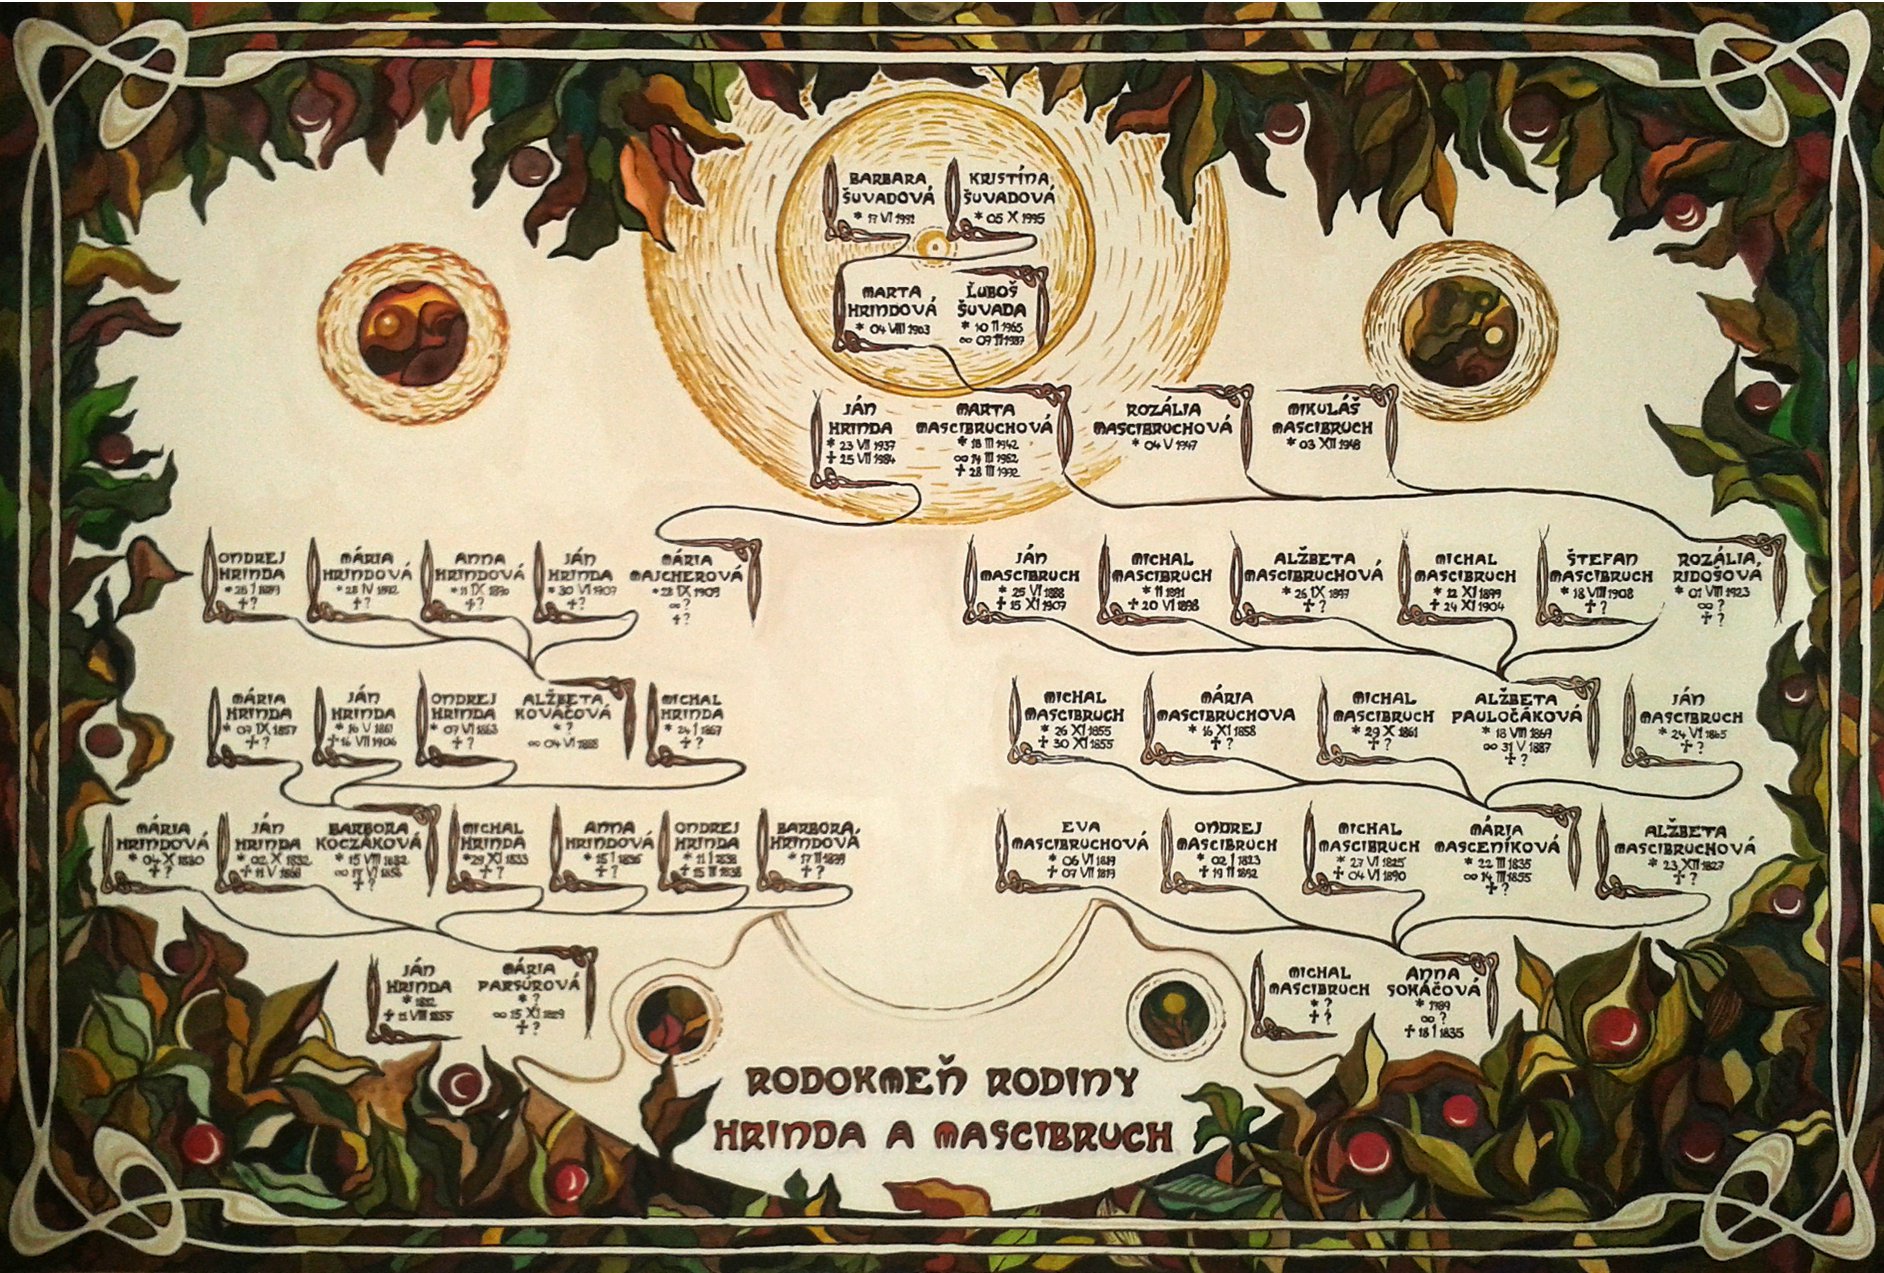 BARBARA
ŠUVADOVÁ
* 17 VI 1992
KRISTÍNA
ŠUVADOVÁ
* 05 X 1995
MARTA
HRINDOVÁ
* 04 VIII 1963
ĽUBOŠ
ŠUVADA
* 10 II 1965
∞ 07 II 1987
JÁN
HRINDA
* 23 VII 1937
† 25 VII 1984
MARTA
MASCIBRUCHOVÁ
* 18 III 1942
∞ 14 III 1962
† 28 III 1992
ROZÁLIA
MASCIBRUCHOVÁ
* 04 V 1947
MIKULÁŠ
MASCIBRUCH
* 03 XII 1948
ONDREJ
HRINDA
† ?
MÁRIA
HRINDOVÁ
† ?
ANNA
HRINDOVÁ
† ?
JÁN
HRINDA
* 30 VI 1907
† ?
MÁRIA
MAJCHEROVÁ
* 28 IX 1909
∞ ?
† ?
JÁN
MASCIBRUCH
* 25 VI 1888
† 15 XI 1907
MICHAL
MASCIBRUCH
* 11 1891
† 20 VI 1898
ALŽBETA
MASCIBRUCHOVÁ
* 26 IX 1897
† ?
MICHAL
MASCIBRUCH
* 12 XI 1899
† 24 XI 1904
ŠTEFAN
MASCIBRUCH
* 18 VIII 1908
† ?
ROZÁLIA
RIDOŠOVÁ
* 01 VIII 1923
∞ ?
† ?
MÁRIA
HRINDA
* 07 IX 1857
† ?
JÁN
HRINDA
* 16 V 1861
† 16 VII 1906
ONDREJ
HRINDA
* 07 VI 1863
† ?
ALŽBETA
KOVÁČOVÁ
* ?
∞ 04 VI 1888
MICHAL
HRINDA
* 24 I 1867
† ?
MICHAL
MASCIBRUCH
* 26 XI 1855
† 30 XI 1855
MÁRIA
MASCIBRUCHOVA
* 16 XI 1858
† ?
MICHAL
MASCIBRUCH
* 29 X 1861
† ?
ALŽBETA
PAULOČÁKOVÁ
* 18 VIII 1869
∞ 31 V 1887
† ?
JÁN
MASCIBRUCH
* 24 VI 1865
† ?
MÁRIA
HRINDOVÁ
* 04 X 1830
† ?
JÁN
HRINDA
* 02 X 1832
† 11 V 1868
BARBORA
KOCZÁKOVÁ
* 15 VIII 1832
∞ 17 VI 1856
† ?
MICHAL
HRINDA
* 29 XI 1833
† ?
ANNA
HRINDOVÁ
* 15 I 1836
† ?
ONDREJ
HRINDA
* 11 I 1838
† 15 III 1838
BARBORA
HRINDOVÁ
* 17 II 1839
† ?
EVA
MASCIBRUCHOVÁ
* 06 VI 1819
† 07 VII 1819
ONDREJ
MASCIBRUCH
* 02 I 1823
† 19 II 1892
MICHAL
MASCIBRUCH
* 27 VI 1825
† 04 VI 1890
MÁRIA
MASCENÍKOVÁ
* 22 III 1835
∞ 14 III 1855
† ?
ALŽBETA
MASCIBRUCHOVÁ
* 23 XII 1827
† ?
JÁN
HRINDA
* 1812
† 11 VIII 1855
MÁRIA
PARSÚROVÁ
* ?
∞ 15 XI 1829
† ?
MICHAL
MASCIBRUCH
* ?
† ?
ANNA
SOKÁČOVÁ
* 1789
∞ ?
† 18 I 1835
RODOKMEŇ RODINY
HRINDA A MASCIBRUCH